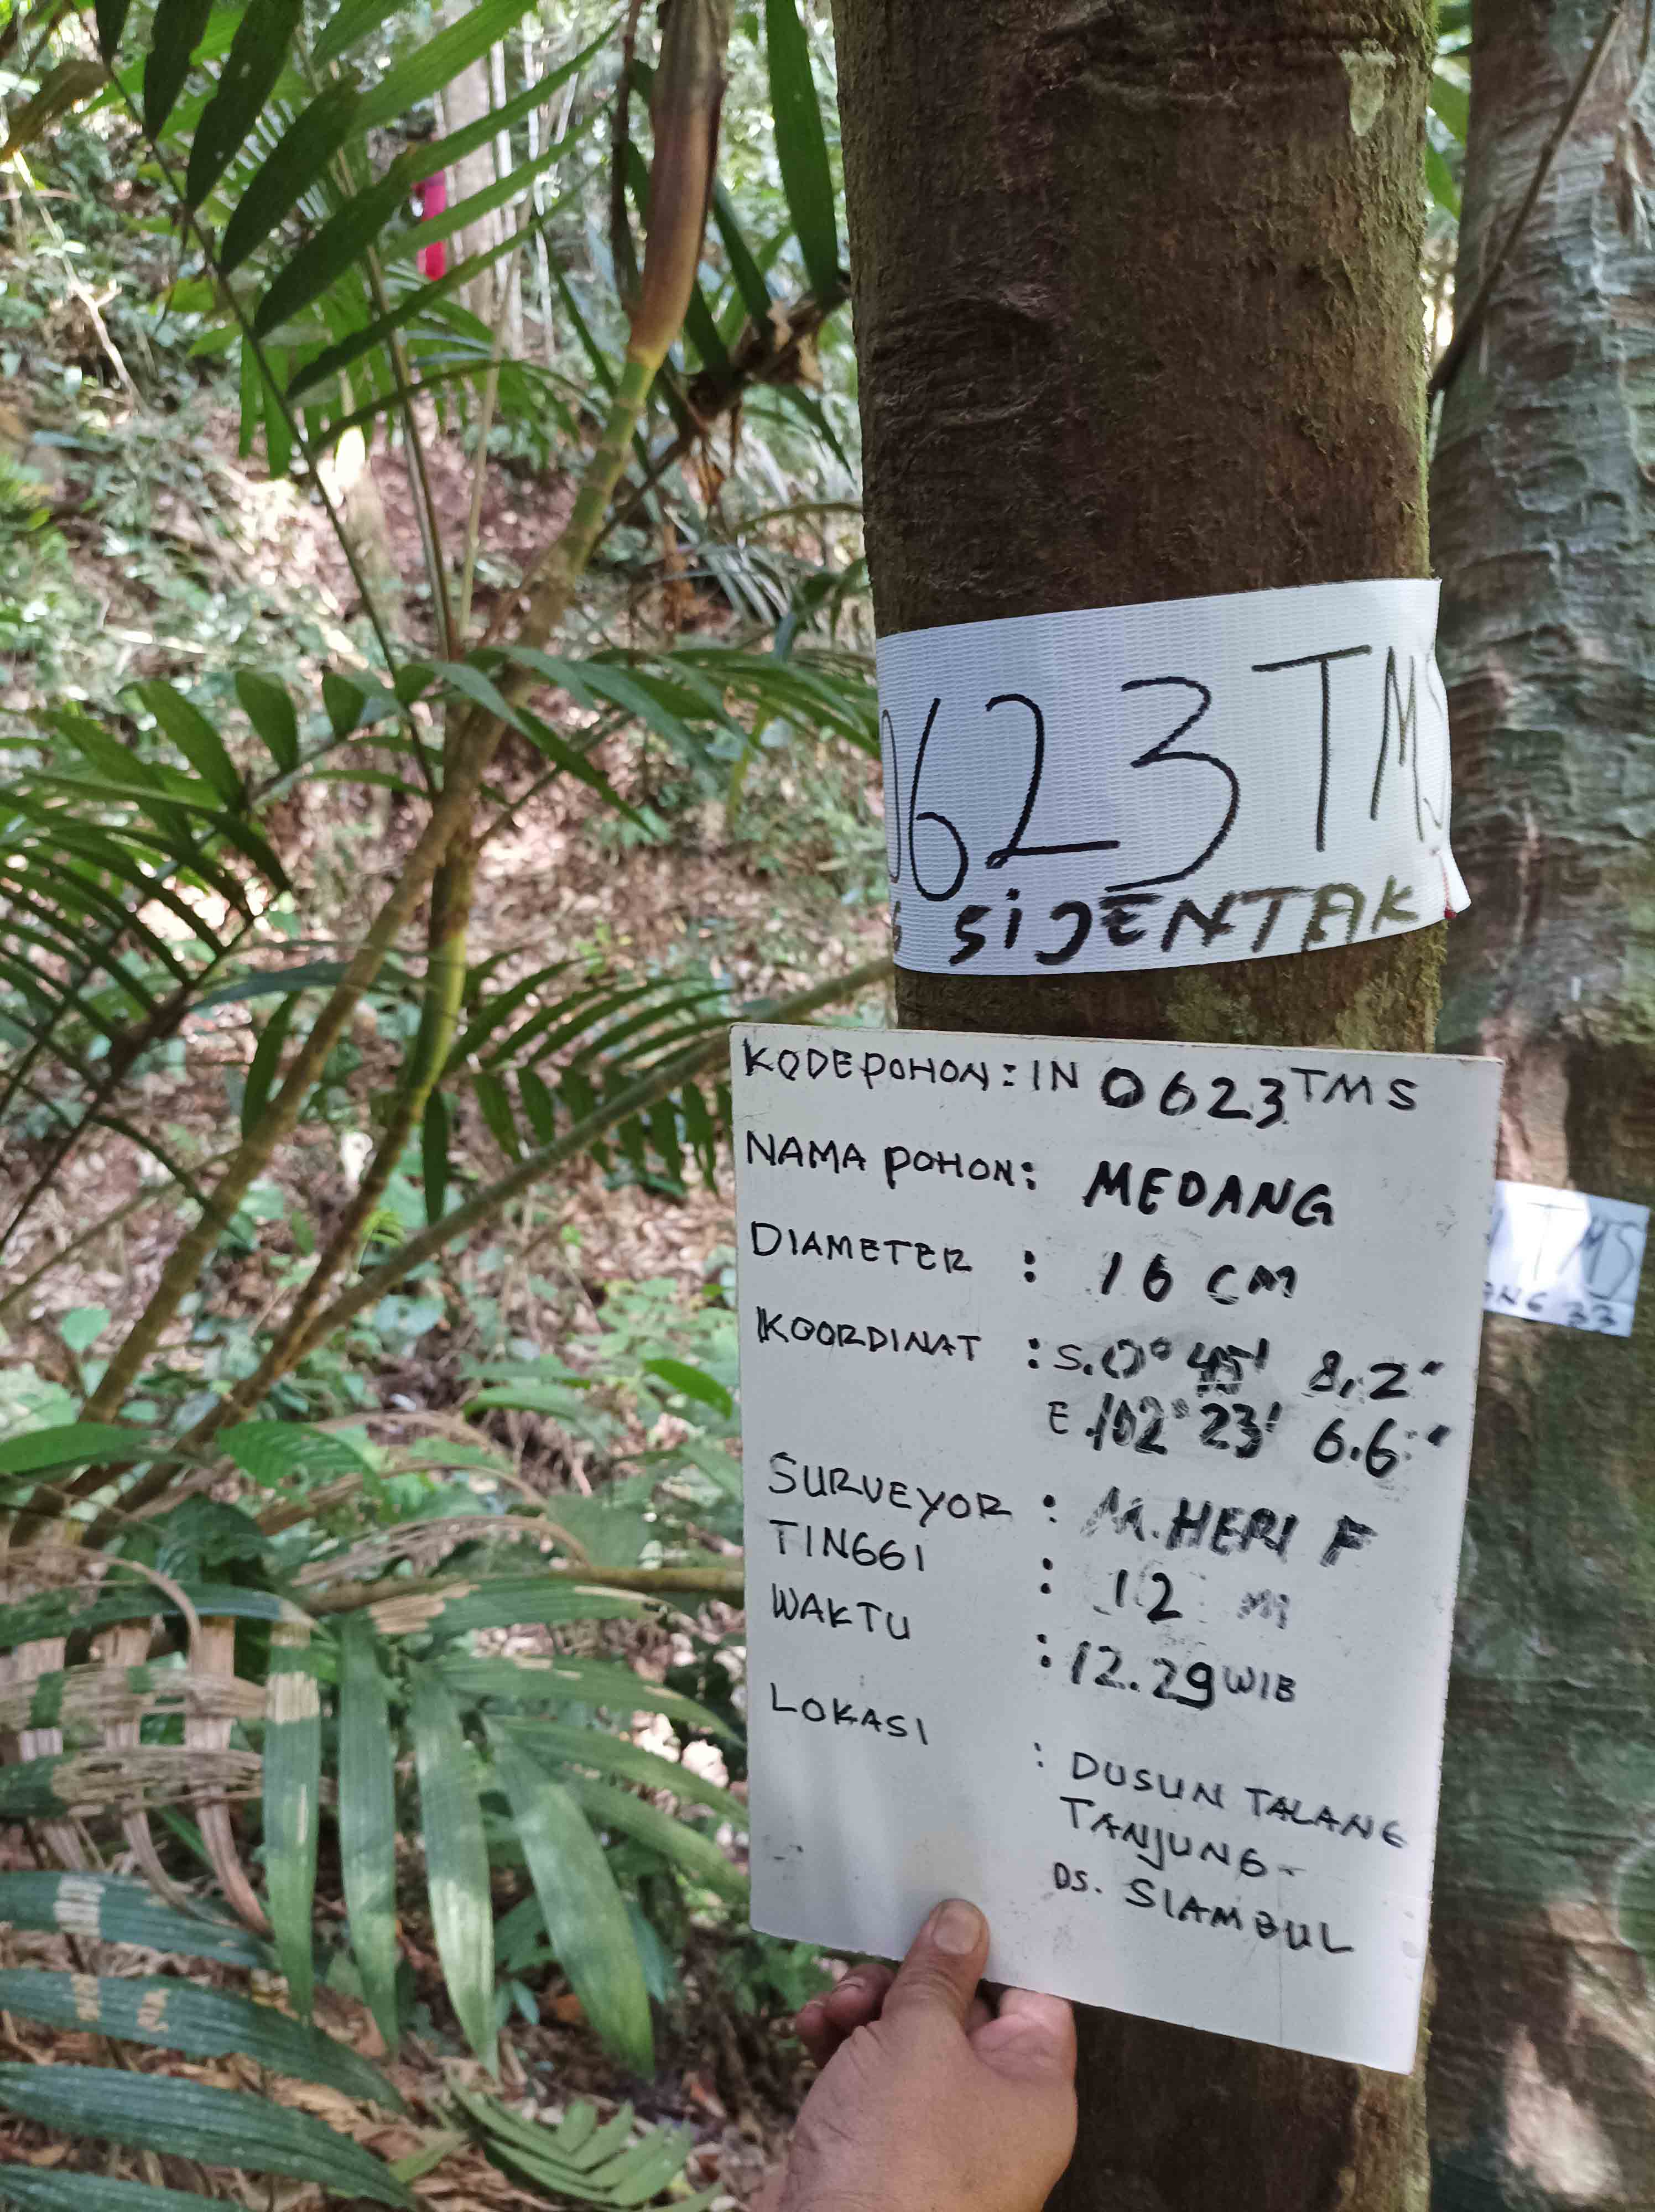 0623 TMS
SIJENTAK
KODE POHON : IN 0623 TMS
NAMA POHON : MEDANG
DIAMETER : 16 CM
KOORDINAT : S.0° 45' 8,2"
E.102° 23' 6.6"
SURVEYOR : M.HERI F
TINGGI : 12 M
WAKTU : 12.29 WIB
LOKASI : DUSUN TALANG
TANJUNG-
DS. SIAMBUL
TMS
33